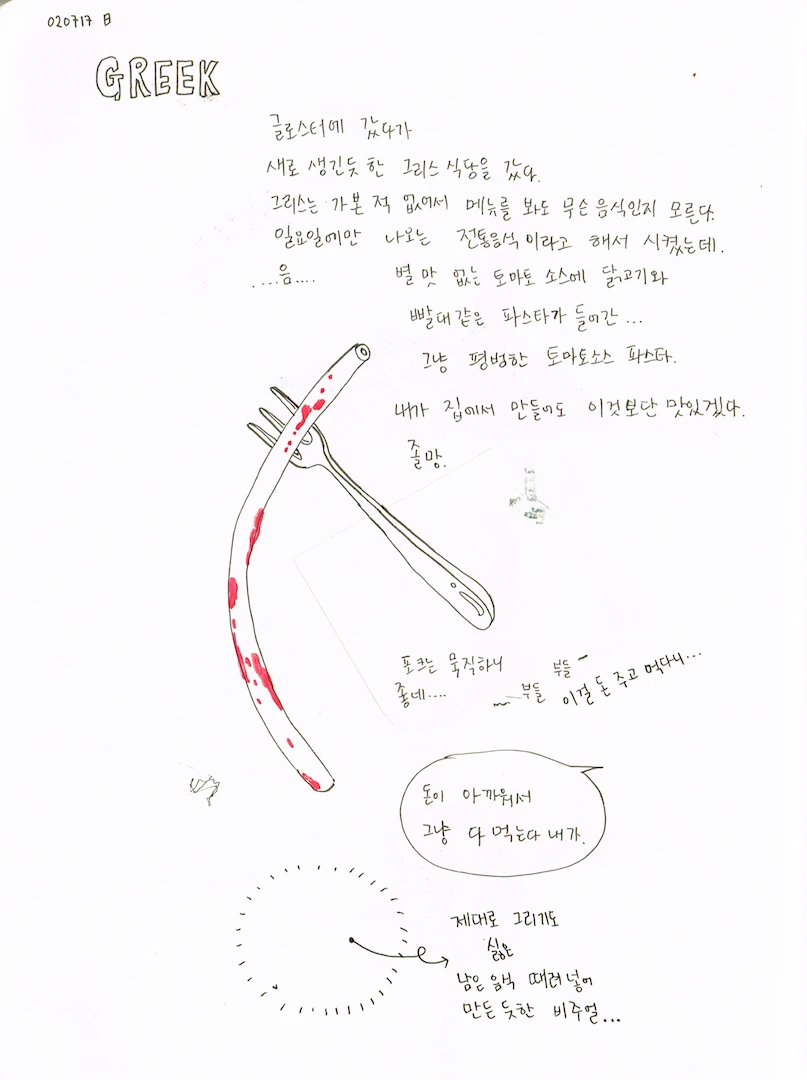 020717 日
GREEK
글로스터에 갔다가
새로 생긴듯 한 그리스 식당을 갔다.
그리스는 가본 적 없어서 메뉴를 봐도 무슨 음식인지 모른다.
일요일에만 나오는 전통음식이라고 해서 시켰는데.
....음.... 별 맛 없는 토마토 소스에 닭고기와
빨대같은 파스타가 들어간 ...
그냥 평범한 토마토소스 파스타.
내가 집에서 만들어도 이것보단 맛있겠다.
졸망.
포크는 묵직하니
좋네....
부들
부들 이걸 돈 주고 먹다니...
돈이 아까워서
그냥 다 먹는다 내가.
제대로 그리기도
싫은
남은 음식 때려넣어
만든 듯한 비주얼...